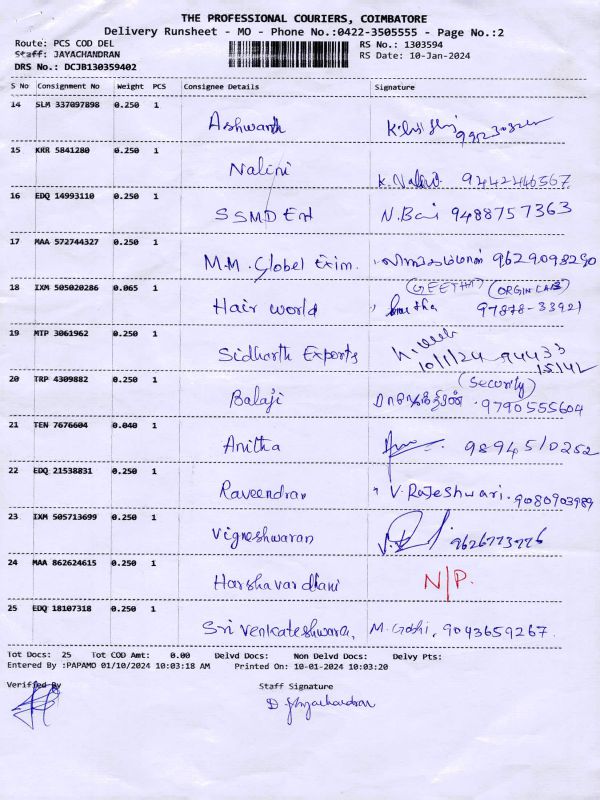 THE PROFESSIONAL COURIERS, COIMBATORE
Delivery Runsheet - MO - Phone No.:0422-3505555 - Page No.:2
Route: PCS COD DEL RS No.: 1303594
Staff: JAYACHANDRAN RS Date: 10-Jan-2024
DRS No.: DCJB130359402
S No Consignment No Weight PCS Consignee Details Signature
14 SLM 337097898 0.250 1
Ashwanth
15 KRR 5841280 0.250 1
Nalini K. Nalini. 9442446567
16 EDQ 14993110 0.250 1
SSMD Ent N. Bai 9488757363
17 MAA 572744327 0.250 1
M.M. Globel Exim. 9629098290
18 IXM 505020286 0.065 1 (GEETHA) (ORGIN LAB)
Hair world 97878-33921
19 MTP 3061962 0.250 1
Sidharth Exports 10/1/24 94433
15142
20 TRP 4309882 0.250 1 (Security)
Balaji 9790555604
21 TEN 7676604 0.040 1
Anitha 9894510252
22 EDQ 21538831 0.250 1
Raveendran V. Rajeshwari. 9080903989
23 IXM 505713699 0.250 1
Vigneshwaran
24 MAA 862624615 0.250 1
Harshavardhani N/P.
25 EDQ 18107318 0.250 1
Sri Venkateshwara, 9043659267.
Tot Docs: 25 Tot COD Amt: 0.00 Delvd Docs: Non Delvd Docs: Delvy Pts:
Entered By :PAPAMO 01/10/2024 10:03:18 AM Printed On: 10-01-2024 10:03:20
Verified By Staff Signature